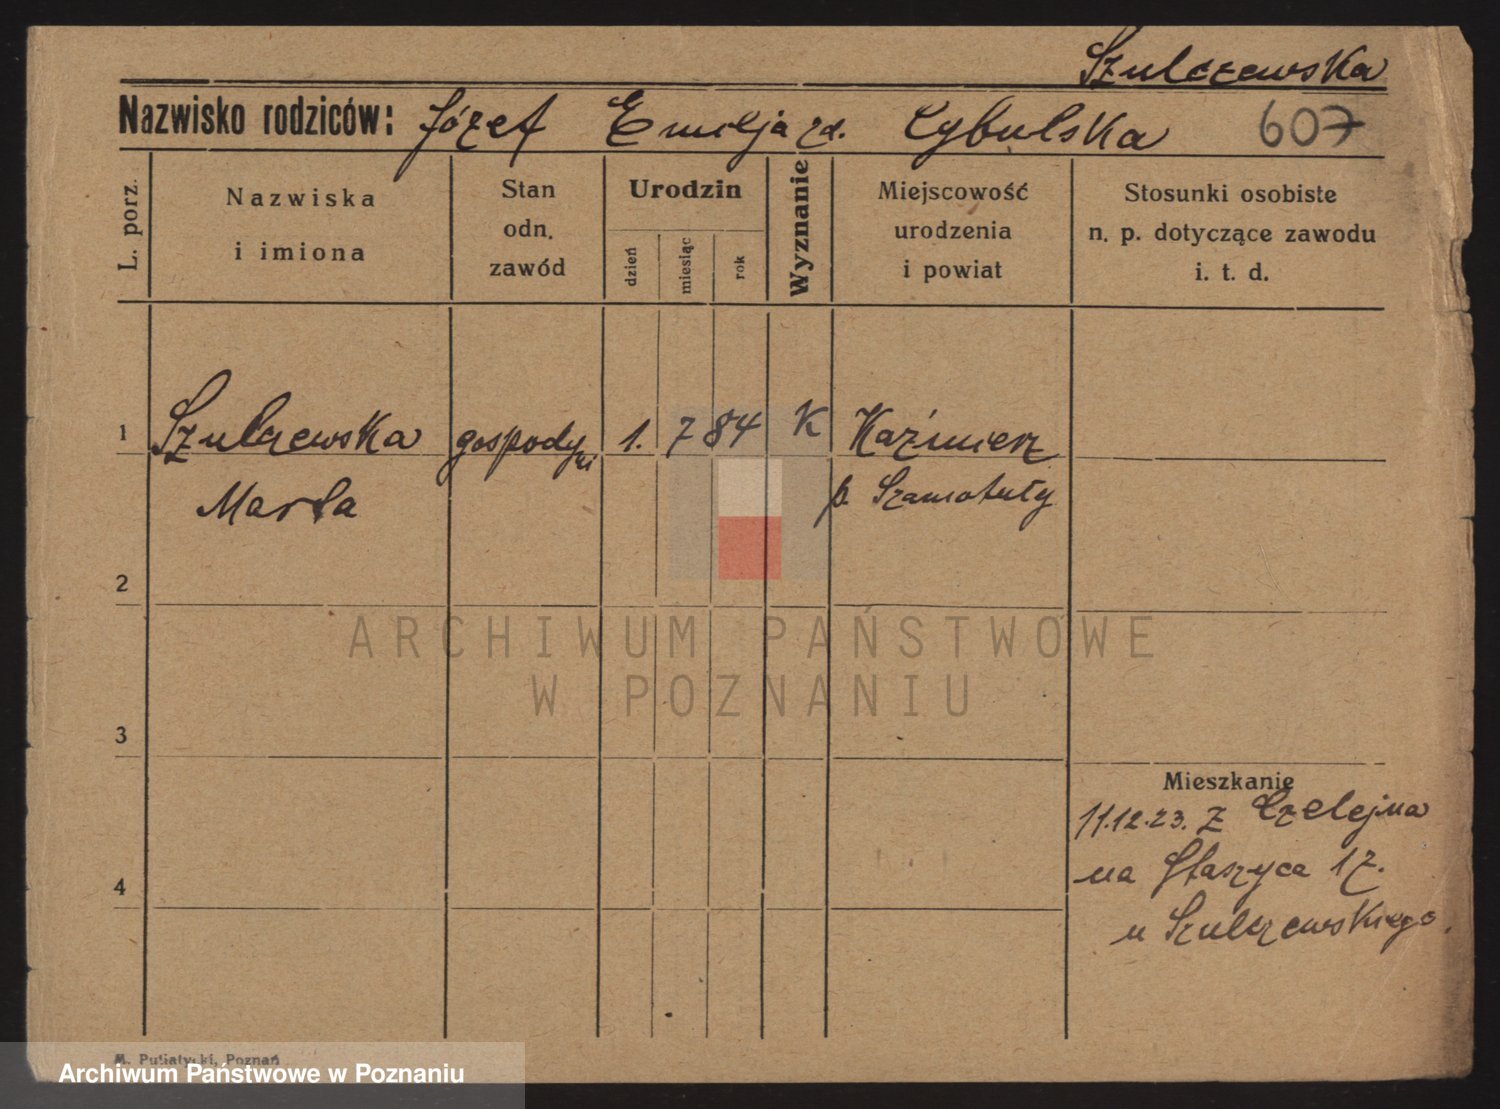 Szulczewska
Nazwisko rodziców: Józef Emilja zd. Cybulska 607
L. porz.
Nazwiska
i imiona
Stan
odn.
zawód
Urodzin
dzień
miesiąc
rok
Wyznanie
Miejscowość
urodzenia
i powiat
Stosunki osobiste
n. p. dotyczące zawodu
i. t. d.
1 Szulczewska gospodyni 1. 7 84 K Kaźmierz
Marta p. Szamotuły
2
ARCHIWUM PAŃSTWOWE
W POZNANIU
3
Mieszkanie
11.12.23. z Czelejna
4 na Staszyca 17.
u Szulczewskiego.
M. Putiatycki, Poznań
Archiwum Państwowe w Poznaniu